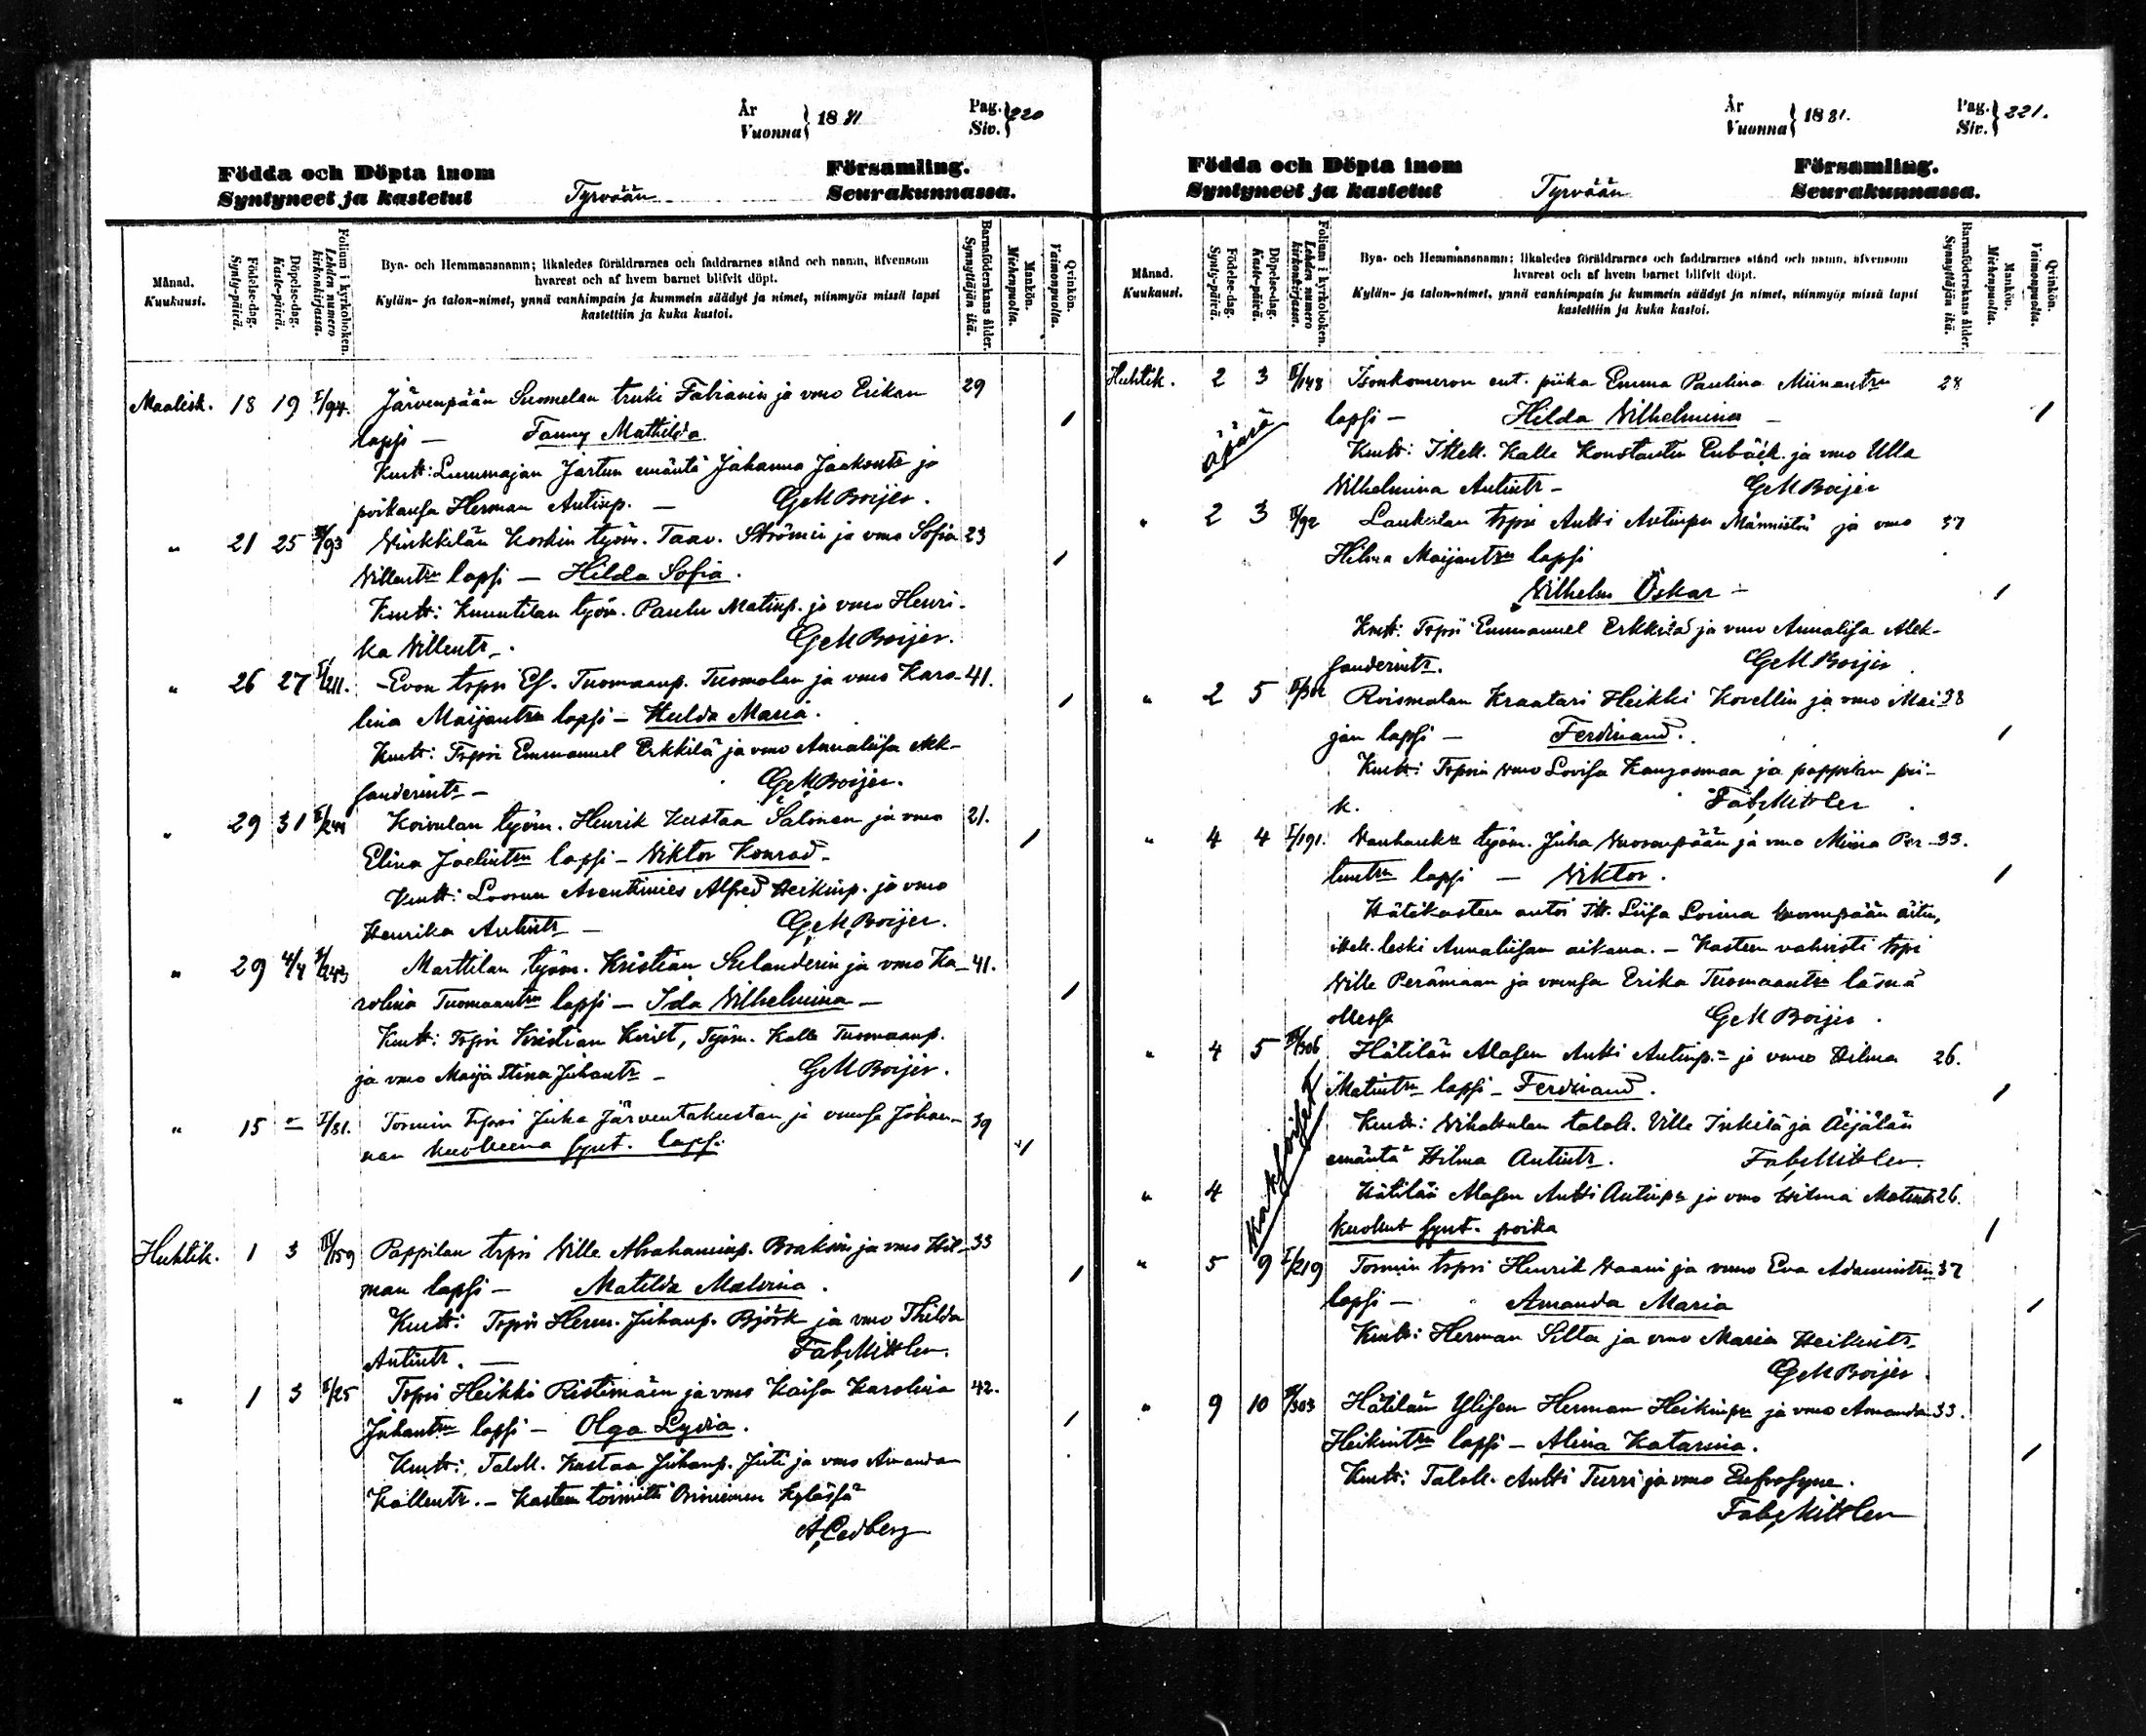 År
Vuonna } 1881
Pag.
Siv. } 220
Födda och Döpta inom Församling.
Syntyneet ja kastetut Tyrvään Seurakunnassa.
Månad.
Kuukausi.
Födelse-dag.
Synty-päivä.
Döpelse-dag.
Kaste-päivä.
Folium i kyrkoboken.
Lehden numero kirkonkirjassa.
Bya- och Hemmansnamn; likaledes föräldrarnes och faddrarnes stånd och namn, äfvensom
hvarest och af hvem barnet blifvit döpt.
Kylän- ja talon-nimet, ynnä vanhimpain ja kummein säädyt ja nimet, niinmyös missä lapsi
kastettiin ja kuka kastoi.
Barnaföderskans ålder.
Synnyttäjän ikä.
Mankön.
Miehenpuolta.
Qvinkön.
Vaimonpuolta.
Maalisk. 18 19 I/94. Järvenpään Suomelan truki Fabianin ja vmo Erikan 29
lapsi — Fanny Mathilda 1
Kmt: Lummajan Jartun emäntä Johanna Jaakontr ja
poikansa Herman Antinp. — GM Boijer.
" 21 25 /93 Winkkilän Koskin työm. Taav. Strömin ja vmo Sofia 23
Willentrn lapsi — Hilda Sofia. 1
Kmtt: Kuuntilan työm. Paulu Matinp. ja vmo Henri-
ka Willentr. GM Boijer.
" 26 27 I/211. Evon trpri Ef. Tuomaanp. Tuomolan ja vmo Karo- 41.
lina Maijantrn lapsi — Hulda Maria. 1
Kmtt: Trpri Emmanuel Erkkilä ja vmo Annaliisa Alek-
sanderintr — GM Boijer.
" 29 31 /244 Koivulan työm. Henrik Kustaa Salonen ja vmo 21.
Elina Joelintrn lapsi — Wiktor Konrad — 1
Kmtt: Loorun Arentimies Alfred Heikinp. ja vmo
Henrika Antintr — GM Boijer.
" 29 4/4 I/243 Marttilan työm. Kristian Selanderin ja vmo Ka- 41.
rolina Tuomaantrn lapsi — Ida Wilhelmina — 1
Kmtt: Trpri Kristian Kirist, Työm. Kalle Tuomaanp.
ja vmo Maija Stina Juhantr — GM Boijer.
" 15 — I/31. Tormin trpri Juha Järventakustan ja vmonsa Johan- 39
nan kuolleena synt. lapsi. 1
Huhtik. 1 3 III/159 Pappilan trpri Wille Abrahaminp. Braksin ja vmo Hil- 33
man lapsi — Matilda Malviina. 1
Kmtt: Trpri Herm. Juhanp. Björk ja vmo Thilda
Antintr. — Fab. Mittler.
" 1 3 I/25 Trpri Heikki Ristimäen ja vmo Kaisa Karolina 42.
Juhantrn lapsi — Olga Lydia. 1
Kmtt: Taloll. Kustaa Juhanp. Juti ja vmo Amanda
Kallentr. — Kasteen toimitti kylässä
A. Cedberg
År
Vuonna } 1881.
Pag.
Siv. } 221.
Födda och Döpta inom Församling.
Syntyneet ja kastetut Tyrvään Seurakunnassa.
Månad.
Kuukausi.
Födelse-dag.
Synty-päivä.
Döpelse-dag.
Kaste-päivä.
Folium i kyrkoboken.
Lehden numero kirkonkirjassa.
Bya- och Hemmansnamn; likaledes föräldrarnes och faddrarnes stånd och namn, äfvensom
hvarest och af hvem barnet blifvit döpt.
Kylän- ja talon-nimet, ynnä vanhimpain ja kummein säädyt ja nimet, niinmyös missä lapsi
kastettiin ja kuka kastoi.
Barnaföderskans ålder.
Synnyttäjän ikä.
Mankön.
Miehenpuolta.
Qvinkön.
Vaimonpuolta.
Huhtik. 2 3 II/148 Isonkomeron ent. piika Emma Paulina Miinantrn 28
äpärä lapsi — Hilda Wilhelmina — 1
Kmtt: Itsell. Kalle Konstantin Enbäck ja vmo Ulla
Wilhelmina Antintr — GM Boijer
" 2 3 /92 Laukulan trpri Antti Antinpn Männistön ja vmo 37
Hilma Maijantrn lapsi
Wilhelm Oskar — 1
Kmtt: Trpri Emmanuel Erkkilä ja vmo Annaliisa Alek-
sanderintr. GM Boijer
" 2 5 Roismalan Kraatari Heikki Kovellin ja vmo Mai- 38
jan lapsi — Ferdinand. 1
Kmtt: Trprin vmo Lovisa Kangasmaa ja pappilan pii-
k. Fab. Mittler
" 4 4 I/191. työm. Juha Vuorenpään ja vmo Miina 33.
lapsi — Wiktor. 1
Hätäkasteen antoi Itt. Liisa Loviisa Vuorenpään äitin,
itsell. leski Annaliisan aikana. — Kasteen vahvisti trpi
Wille Perämaan ja vmonsa Erika Tuomaantr läsnä
ollessa GM Boijer.
" 4 5 /306 Hätilän Alasen Antti Antinp. ja vmo Hilma 26.
Matintrn lapsi — Ferdinand. 1
Kaksoiset
Kmtt: taloll. Ville Inkilä ja Äijälän
emäntä Hilma Antintr. Fab. Mittler.
" 4 Hätilän Alasen Antti Antinpn ja vmo Hilma Matint. 26.
kuollut synt. poika 1
" 5 9 I/219 Tormin trpri Henrik Waani ja vmo Eva Adamintrn 37
lapsi — Amanda Maria 1
Kmtt: Herman Silta ja vmo Maria Heikintr.
GM Boijer.
" 9 10 /303 Hätilän Ylisen Herman Heikinpn ja vmo Amanda 33.
Heikintrn lapsi — Alina Katarina. 1
Kmtt: Taloll. Antti Turri ja vmo Eufrosyne.
Fab. Mittler